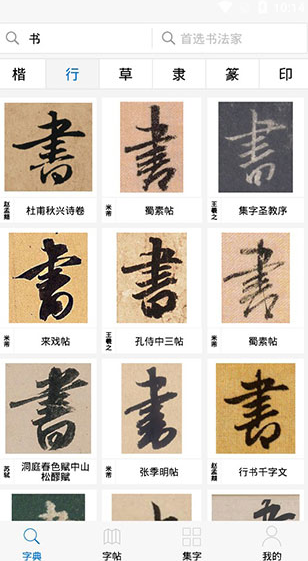 10:14
书 首选书法家
楷 行 草 隶 篆 印
書 書 書
赵孟頫 杜甫秋兴诗卷 米芾 蜀素帖 王羲之 集字圣教序
書 書 書
米芾 来戏帖 王羲之 孔侍中三帖 米芾 蜀素帖
書 書 書
苏轼 洞庭春色赋中山
松醪赋 米芾 张季明帖 赵孟頫 行书千字文
字典 字帖 集字 我的